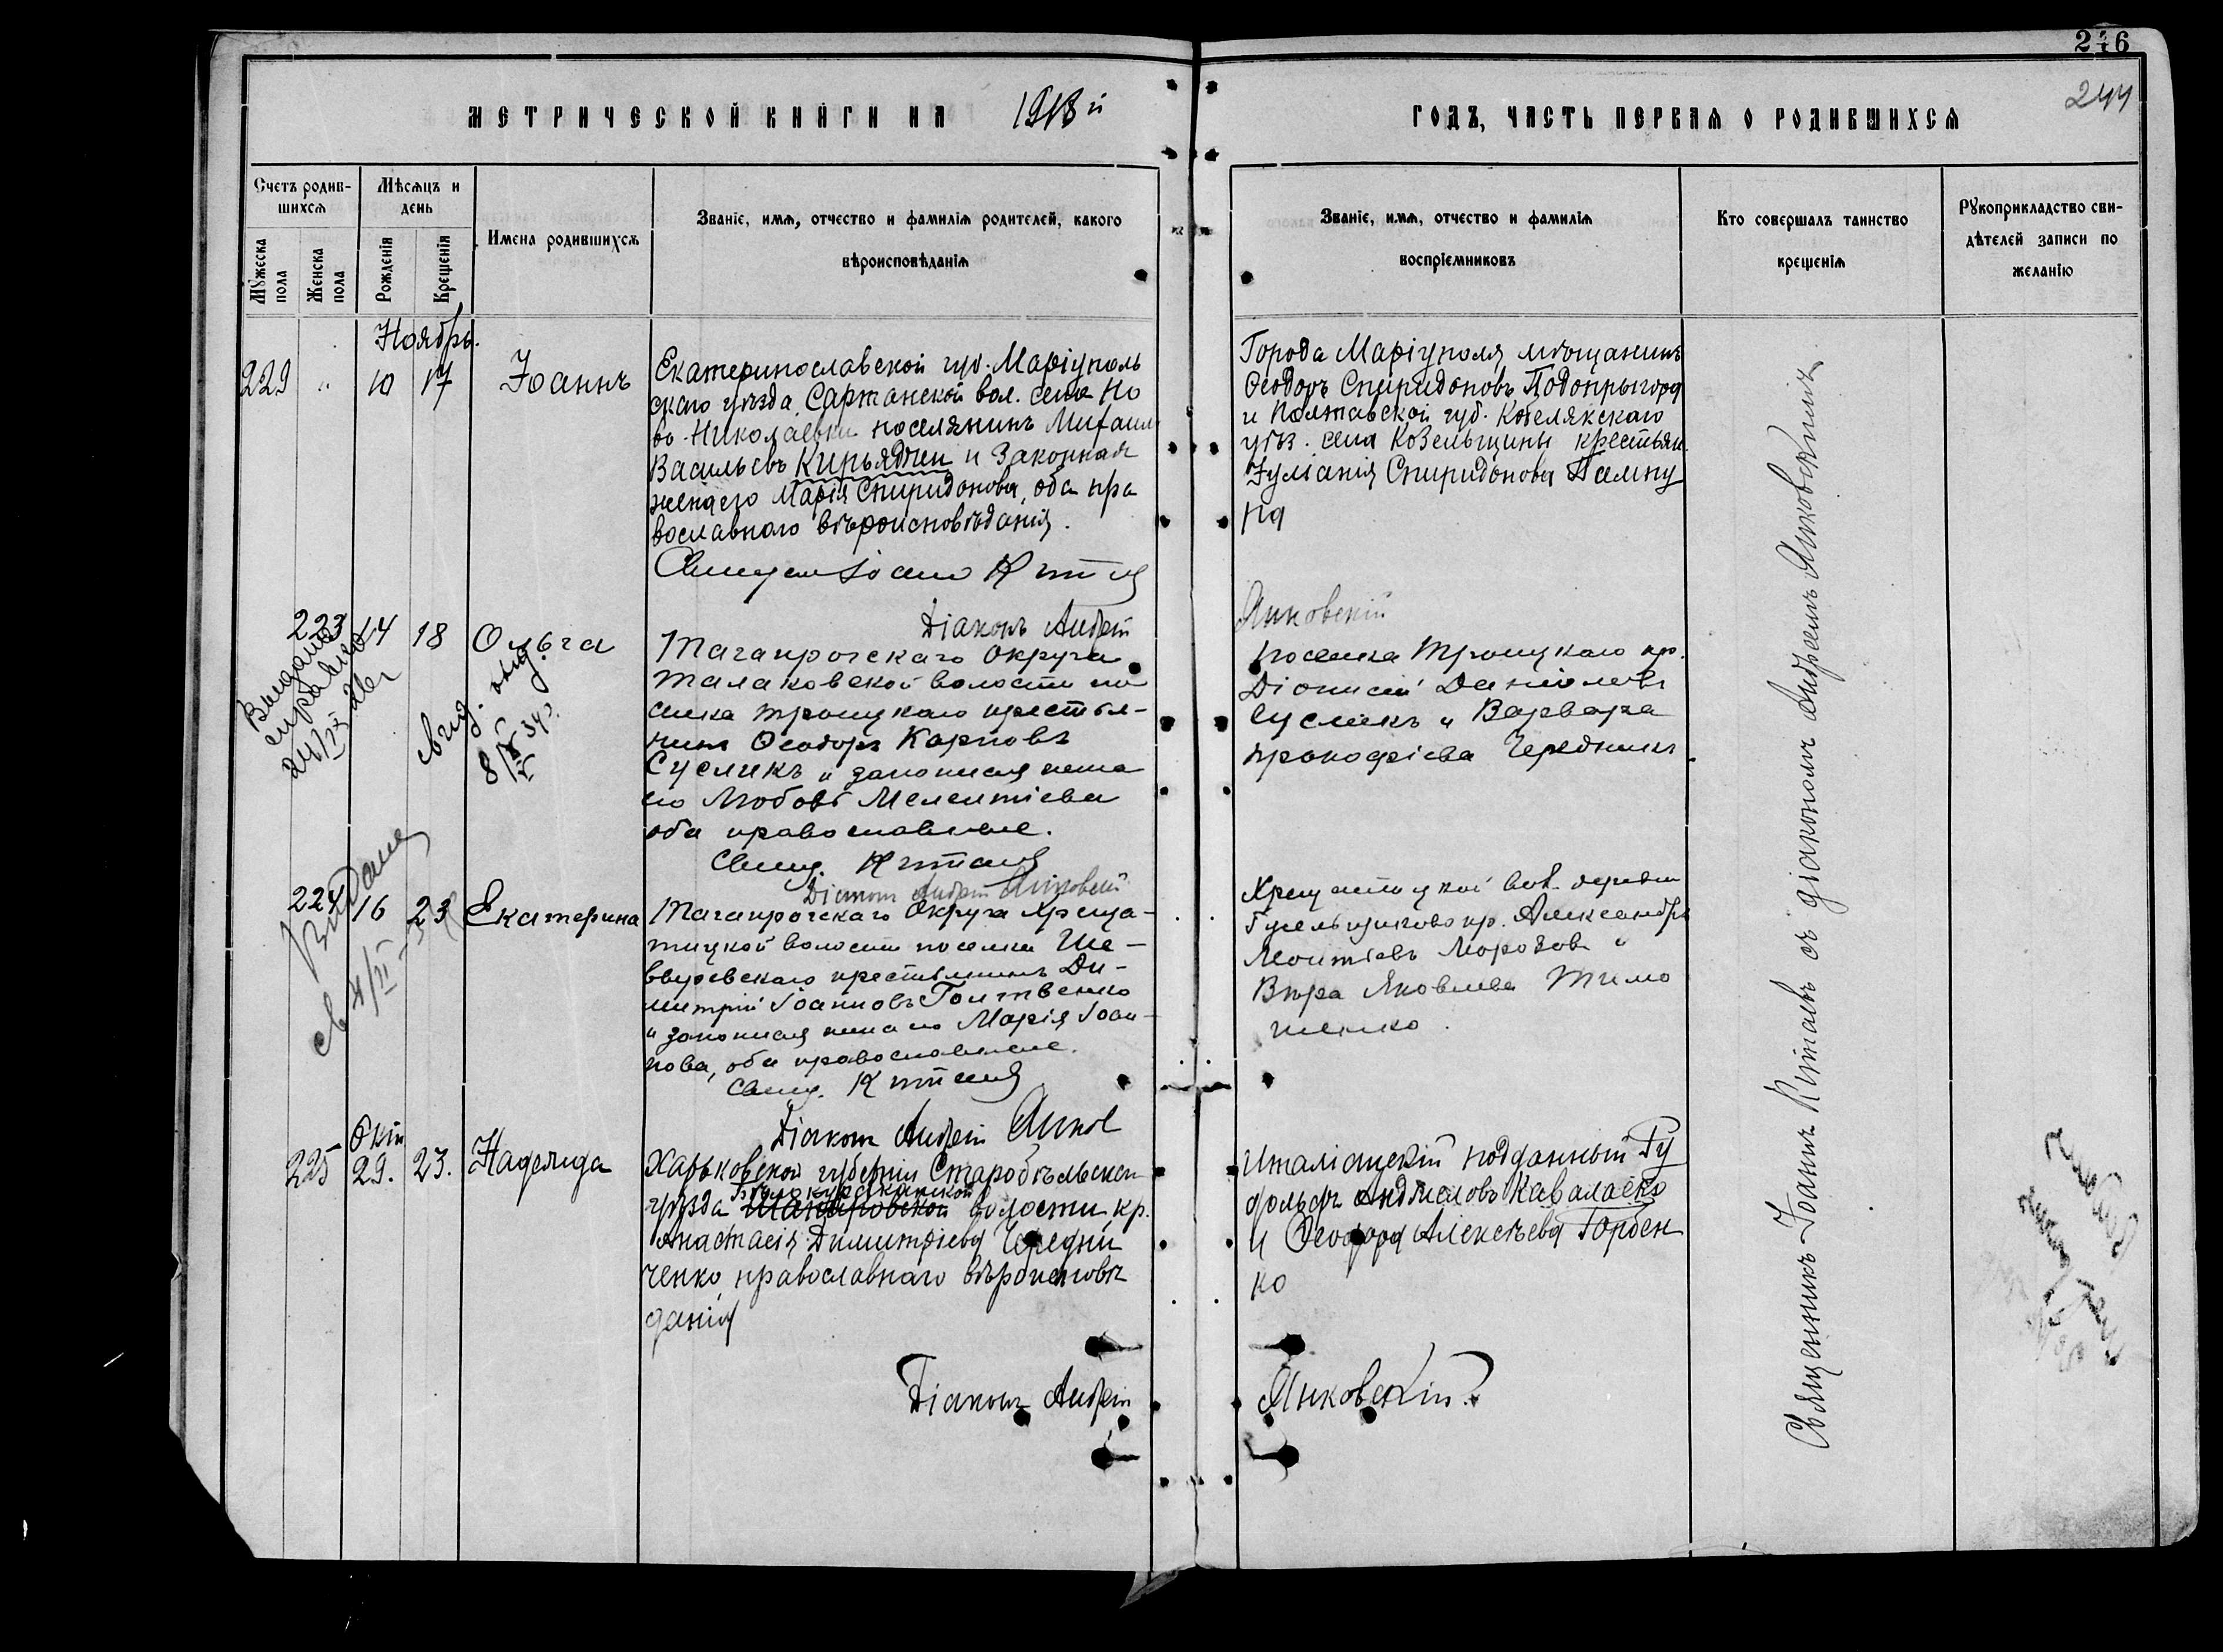 246
244
МЕТРИЧЕСКОЙ КНИГИ НА 1918 й
ГОДЪ, ЧАСТЬ ПЕРВАЯ О РОДИВШИХСЯ
Счетъ родив-
шихся
Мужеска
пола
Женска
пола
Мѣсяцъ и
день
Рожденія
Крещенія
Имена родившихся
Званіе, имя, отчество и фамилія родителей, какого
вѣроисповѣданія
Званіе, имя, отчество и фамилія
воспріемниковъ
Кто совершалъ таинство
крещенія
Рукоприкладство сви-
дѣтелей записи по
желанію
Ноябрь.
229 " 10 17 Іоаннъ
Екатеринославской губ. Маріуполь
скаго уѣзда, Сартанской вол. села Но
во-Николаевки поселянинъ Михаилъ
Васильевъ и законная
жена его Марія Спиридонова, оба пра
вославнаго вѣроисповѣданія.
Діаконъ Андрей
Города Маріуполя мѣщанинъ
Ѳеодоръ Спиридоновъ Подопрыгора
и Полтавской губ. Кобелякскаго
уѣз. села Козельщины крестьян.
Іуліанія Спиридонова
на
Янковскій
223 14 18 Ольга
Выдана
справка
Таганрогскаго Округа
Талаковской волости по
селка Троицкаго крестья-
нинъ Ѳеодоръ Карповъ
Сусликъ и законная жена
его Любовь Мелентіева
оба православные.
Свящ. Китаевъ
Діаконъ Андрей Янковскій
поселка Троицкаго кр.
Діонисій Даніиловъ
Сусликъ и Варвара
Прокофіева Чередникъ
224 16 23 Екатерина
Выдана
Таганрогскаго Округа Хреща-
тицкой волости поселка Ше-
крестьянинъ Ди-
митрій Іоанновъ
и законная жена его Марія Іоан-
нова, оба православные.
Свящ. Китаевъ
Діаконъ Андрей Янков
Хрещатицкой вол. деревни
Гусельщиково кр. Александръ
Леонтіевъ Морозовъ и
Вѣра Яковлева Тимо
шенко.
Окт
225 29. 23. Надежда
Харьковской губерніи Старобѣльскаго
уѣзда Бѣлокуракинской волости кр.
Анастасія Димитріева Чередни
ченко, православнаго вѣроисповѣ
данія
Діаконъ Андрей
Италіанскій подданный Ру
дольфъ Каваласко
и Ѳеодора Алексѣева Горбен
ко
Янковскій.
Священникъ Іоаннъ Китаевъ съ діакономъ Андреемъ Янковскимъ